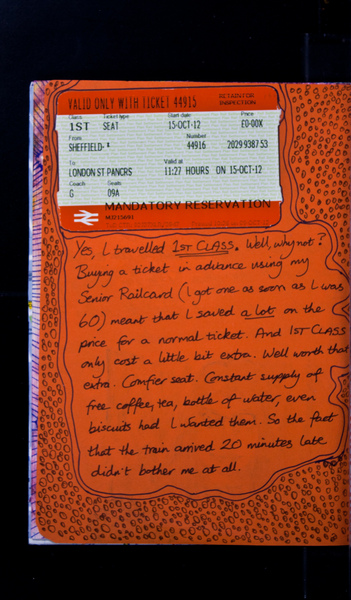 VALID ONLY WITH TICKET 44915
RETAIN FOR
INSPECTION
Class Ticket type Start date Price
1ST SEAT 15-OCT-12 £0-00X
From Number
SHEFFIELD- * 44916 2029938753
To Valid at
LONDON ST PANCRS 11:27 HOURS ON 15-OCT-12
Coach Seats
G 09A
MANDATORY RESERVATION
Yes, I travelled 1ST CLASS. Well, why not?
Buying a ticket in advance using my
Senior Railcard (I got one as soon as I was
60) meant that I saved a lot on the
price for a normal ticket. And 1ST CLASS
only cost a little bit extra. Well worth that
extra. Comfier seat. Constant supply of
free coffee, tea, bottle of water, even
biscuits had I wanted them. So the fact
that the train arrived 20 minutes late
didn't bother me at all.